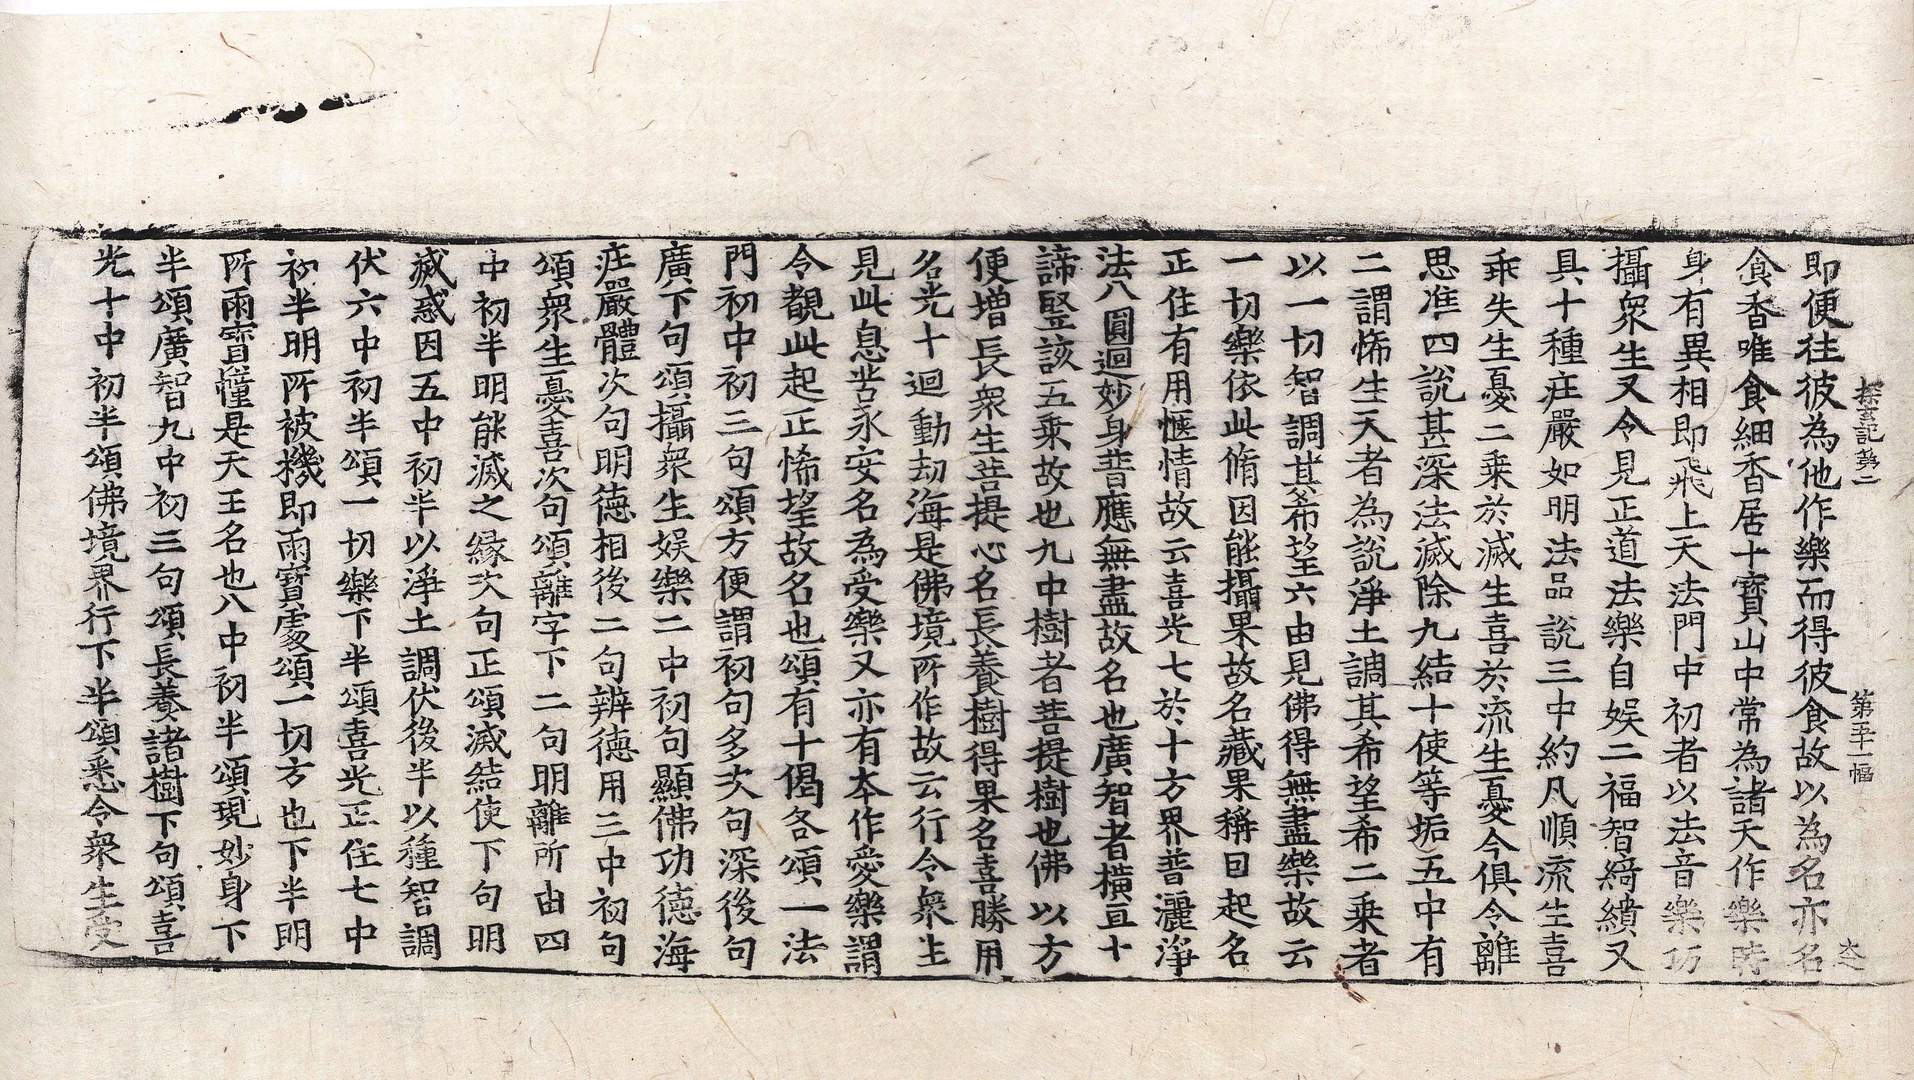 探玄記第二　第五十一幅
即便往彼為他作樂而得彼食故以為名亦名
食香唯食細香居十寶山中常為諸天作樂時
身有異相即飛上天法門中初者以法音樂巧
攝衆生又令見正道法樂自娛二福智綺繢又
具十種庄嚴如明法品說三中約凡順流生喜
乖失生憂二乗於滅生喜於流生憂今俱令離
思准四說甚深法滅除九結十使等垢五中有
二謂悕生天者為說淨土調其希望希二乗者
以一切智調其希望六由見佛得無盡樂故云
一切樂依此脩因能攝果故名藏果稱目起名
正住有用愜情故云喜光七於十方界普灑淨
法八圓迴妙身普應無盡故名也廣智者橫亘十
諦豎該五乗故也九中樹者菩提樹也佛以方
便增長衆生菩提心名長養樹得果名喜勝用
名光十迴動劫海是佛境所作故云行令衆生
見此息苦永安名為受樂又亦有夲作愛樂謂
令覩此起正悕望故名也頌有十偈各頌一法
門初中初三句頌方便謂初句多次句深後句
廣下句頌攝衆生娛樂二中初句顯佛功德海
庄嚴體次句明德相後二句辨德用三中初句
頌衆生憂喜次句頌離字下二句明離所由四
中初半明能滅之緣次句正頌滅結使下句明
滅惑因五中初半以淨土調伏後半以種智調
伏六中初半頌一切樂下半頌喜光正住七中
初半明所被機即雨寶處頌一切方也下半明
所雨寶幢是天王名也八中初半頌現妙身下
半頌廣智九中初三句頌長養諸樹下句頌喜
光十中初半頌佛境界行下半頌悉令衆生受